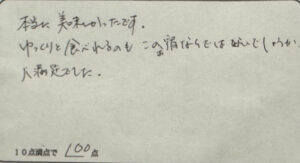 本当に美味しかったです。
ゆっくりと食べれるのもこの宿ならではなんでしょうか
大満足でした。
10点満点で 100点